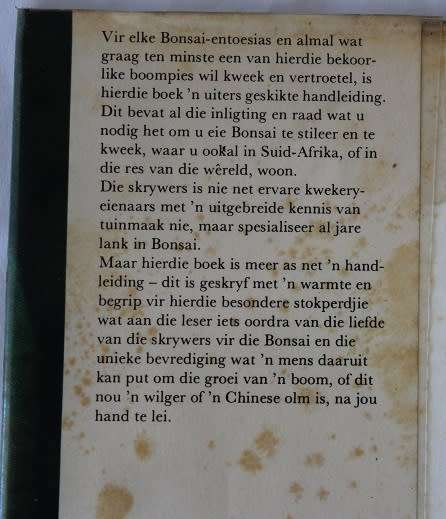 Vir elke Bonsai-entoesias en almal wat
graag ten minste een van hierdie bekoor-
like boompies wil kweek en vertroetel, is
hierdie boek 'n uiters geskikte handleiding.
Dit bevat al die inligting en raad wat u
nodig het om u eie Bonsai te stileer en te
kweek, waar u ookal in Suid-Afrika, of in
die res van die wêreld, woon.
Die skrywers is nie net ervare kwekery-
eienaars met 'n uitgebreide kennis van
tuinmaak nie, maar spesialiseer al jare
lank in Bonsai.
Maar hierdie boek is meer as net 'n hand-
leiding – dit is geskryf met 'n warmte en
begrip vir hierdie besondere stokperdjie
wat aan die leser iets oordra van die liefde
van die skrywers vir die Bonsai en die
unieke bevrediging wat 'n mens daaruit
kan put om die groei van 'n boom, of dit
nou 'n wilger of 'n Chinese olm is, na jou
hand te lei.